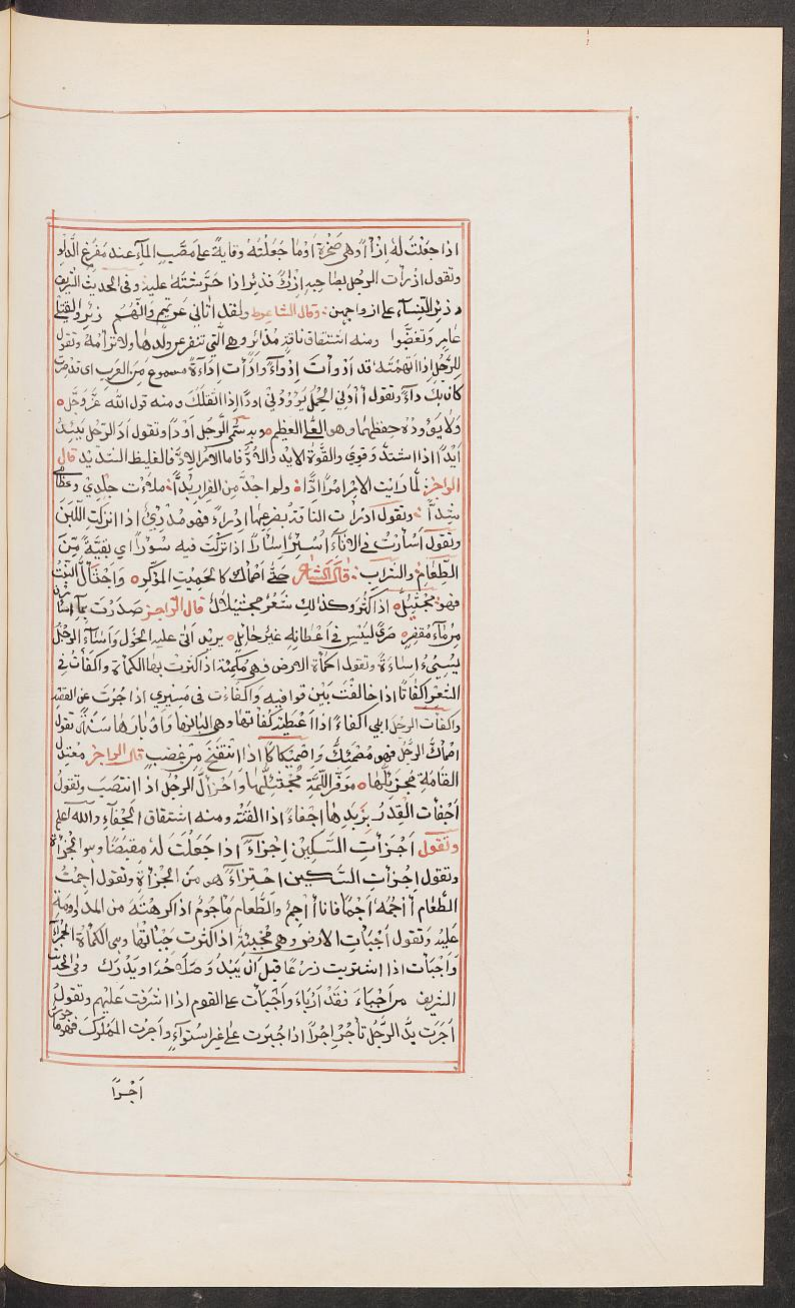 اذا جعَلتَ لَهُ اِزَاً وهى صَخْرة اَوْمَا جُعَلْتَهُ وقايةً على مَصَبّ المآءِ عند مَفْرَغ الدَّلْو
وتقول اذْرأت الرجل بصَاحِبِه اِذْرَآً فذئِر اذا حَرَّشتَهُ عليه وفى الحديث الشريف
ذئِر النسآء على ازواجهن وقال الشاعر ولقد اتانى عن تميم وانّهُمْ ذئِروا لقتلى
عَامر وتَغَضَّبُوا ومنه اشتقاق ناقةٍ مُذائِر وهى الّتى تنفر عن ولَدِهَا ولا ترأمُهُ وتقول
للرّجُلِ اِذا اتّهَمْتَه قد اَدْوأتَ اِدْوآءً وادَأت اِدَاءَةً مسموع مِنَ العَرب اى قد صرت
كان بك دآءٌ وتقول اٰدَنِى الحِمْلُ يَؤُودُنِى اودًا اِذا اثقلكَ ومنه قول الله عَزَّوجَلَّ
وَلَا يَؤُودُهُ حِفظهُمَا وهو العَلىُّ العظيم وبه سُمّى الرَّجل اَوْدًا وتقول ادَ الرّجل يَئِيدُ
اَيْدًا اذا اشتدّ وقوِىَ والقُوّة الايد والادُّ فاما الامر الادّ فالغليظ الشديد قال
الراجز لمّا رَايْت الامر امرًا اِدَّا ولم اجد مِنَ الفِرار بُدًّا مَلأت جِلْدِى وعظامى
شِدَّا وتقول ادرأت الناقة بضرعِها اِدْرَاءً فهو مُدْرِئٌ اذا انزَلَت اللَّبَن
وتقول اَسْأرْتُ فى الانآءِ اُسْئِرُ اِسْآرًا اذا تركتَ فيه سُؤْرًا اى بقيَّةً مِّنَ
الطَّعَامِ والشراب قال الشاعر
فهو مُجْثَئِلٌّ اذا كثُر وكذلك شَعْرٌ مجثئِلّ قال الرّاجز صَدَرَتْ بمآءِ
يريد اتى عليه الحَوْل وَاَسآءَ الرّجُلُ
يُسِيْئُ اِسَاءَةً وتقول اَكمأتِ الارض فهى مُكْمِئَة اذا كثرت بها الكمأة واكفأتُ فى
الشعر اكفاءًا اذا خالَفْتَ بَيْن قوافيه وَاكفأت فى مَسِيرى اذا جُرْتَ عن القصد
واكفأت الرجل ابلى اكفاءً اذا اَعْطَيتَه كُفأتها وهى البانها وَاَوْبارهَا سَنَة وتقول
اضمأكَّ الرجُل فهو مُضمَئِكٌّ وَاضمِئكاكًا اذا انتفَخَ مِنْ غضبٍ قال الراجز مُعْتَدِلُ
القَامَةِ مُحْزَئِلّهَا مُوَفّر اللّمَّةِ مُجْثَئِلّهَا واحْزأَلّ الرجُل اذا انتصَبَ وتقولُ
اَجْفأت القِدْرُ بِزَبَدِهَا اِجفاءً اذا القَتْهُ ومنه اشتقاق الجُفَاءِ والله اعلم
وتقول اَجْزأتِ السِّكينَ اِجْزاءً اذا جَعَلْتَ لهُ مِقبَضًا وهو الجُزأة
وتقول اجْزأتِ السّكين اجْتزاءً هو مِنَ الجُزْأةِ وتقول اَجِمْتُ
الطَّعَام اٰجِمُهُ اَجْمًا فانا اٰجِمٌ والطَّعام مَاْجُوم اذا كرِهْتَهُ من المداومةِ
عليهِ وَتقول اَجْبَأَتِ الارض وهى مُجْبِئَةٌ اذا كثُرت جَبْأتُهَا وهى الكمأة الحمرآء
وَاَجْبأت اذا اشتريت زرْعًا قبل اَنْ يَبْدُوَ صَلَاحُهُ او يُدْرك وفى الحديث
الشريف من اَجْبَأَ فقَدْ اَرْبَأ واَجْبَأت على القوم اذا اشرَفت عَلَيْهم وتقول
اَجَرَت يدُ الرّجُل تأجُرُ اجُرًا اذا جُبِرَت على غير اسْتوآءٍ واَجَرْت المَمْلوكَ فهو مأجور
اَجْرًا